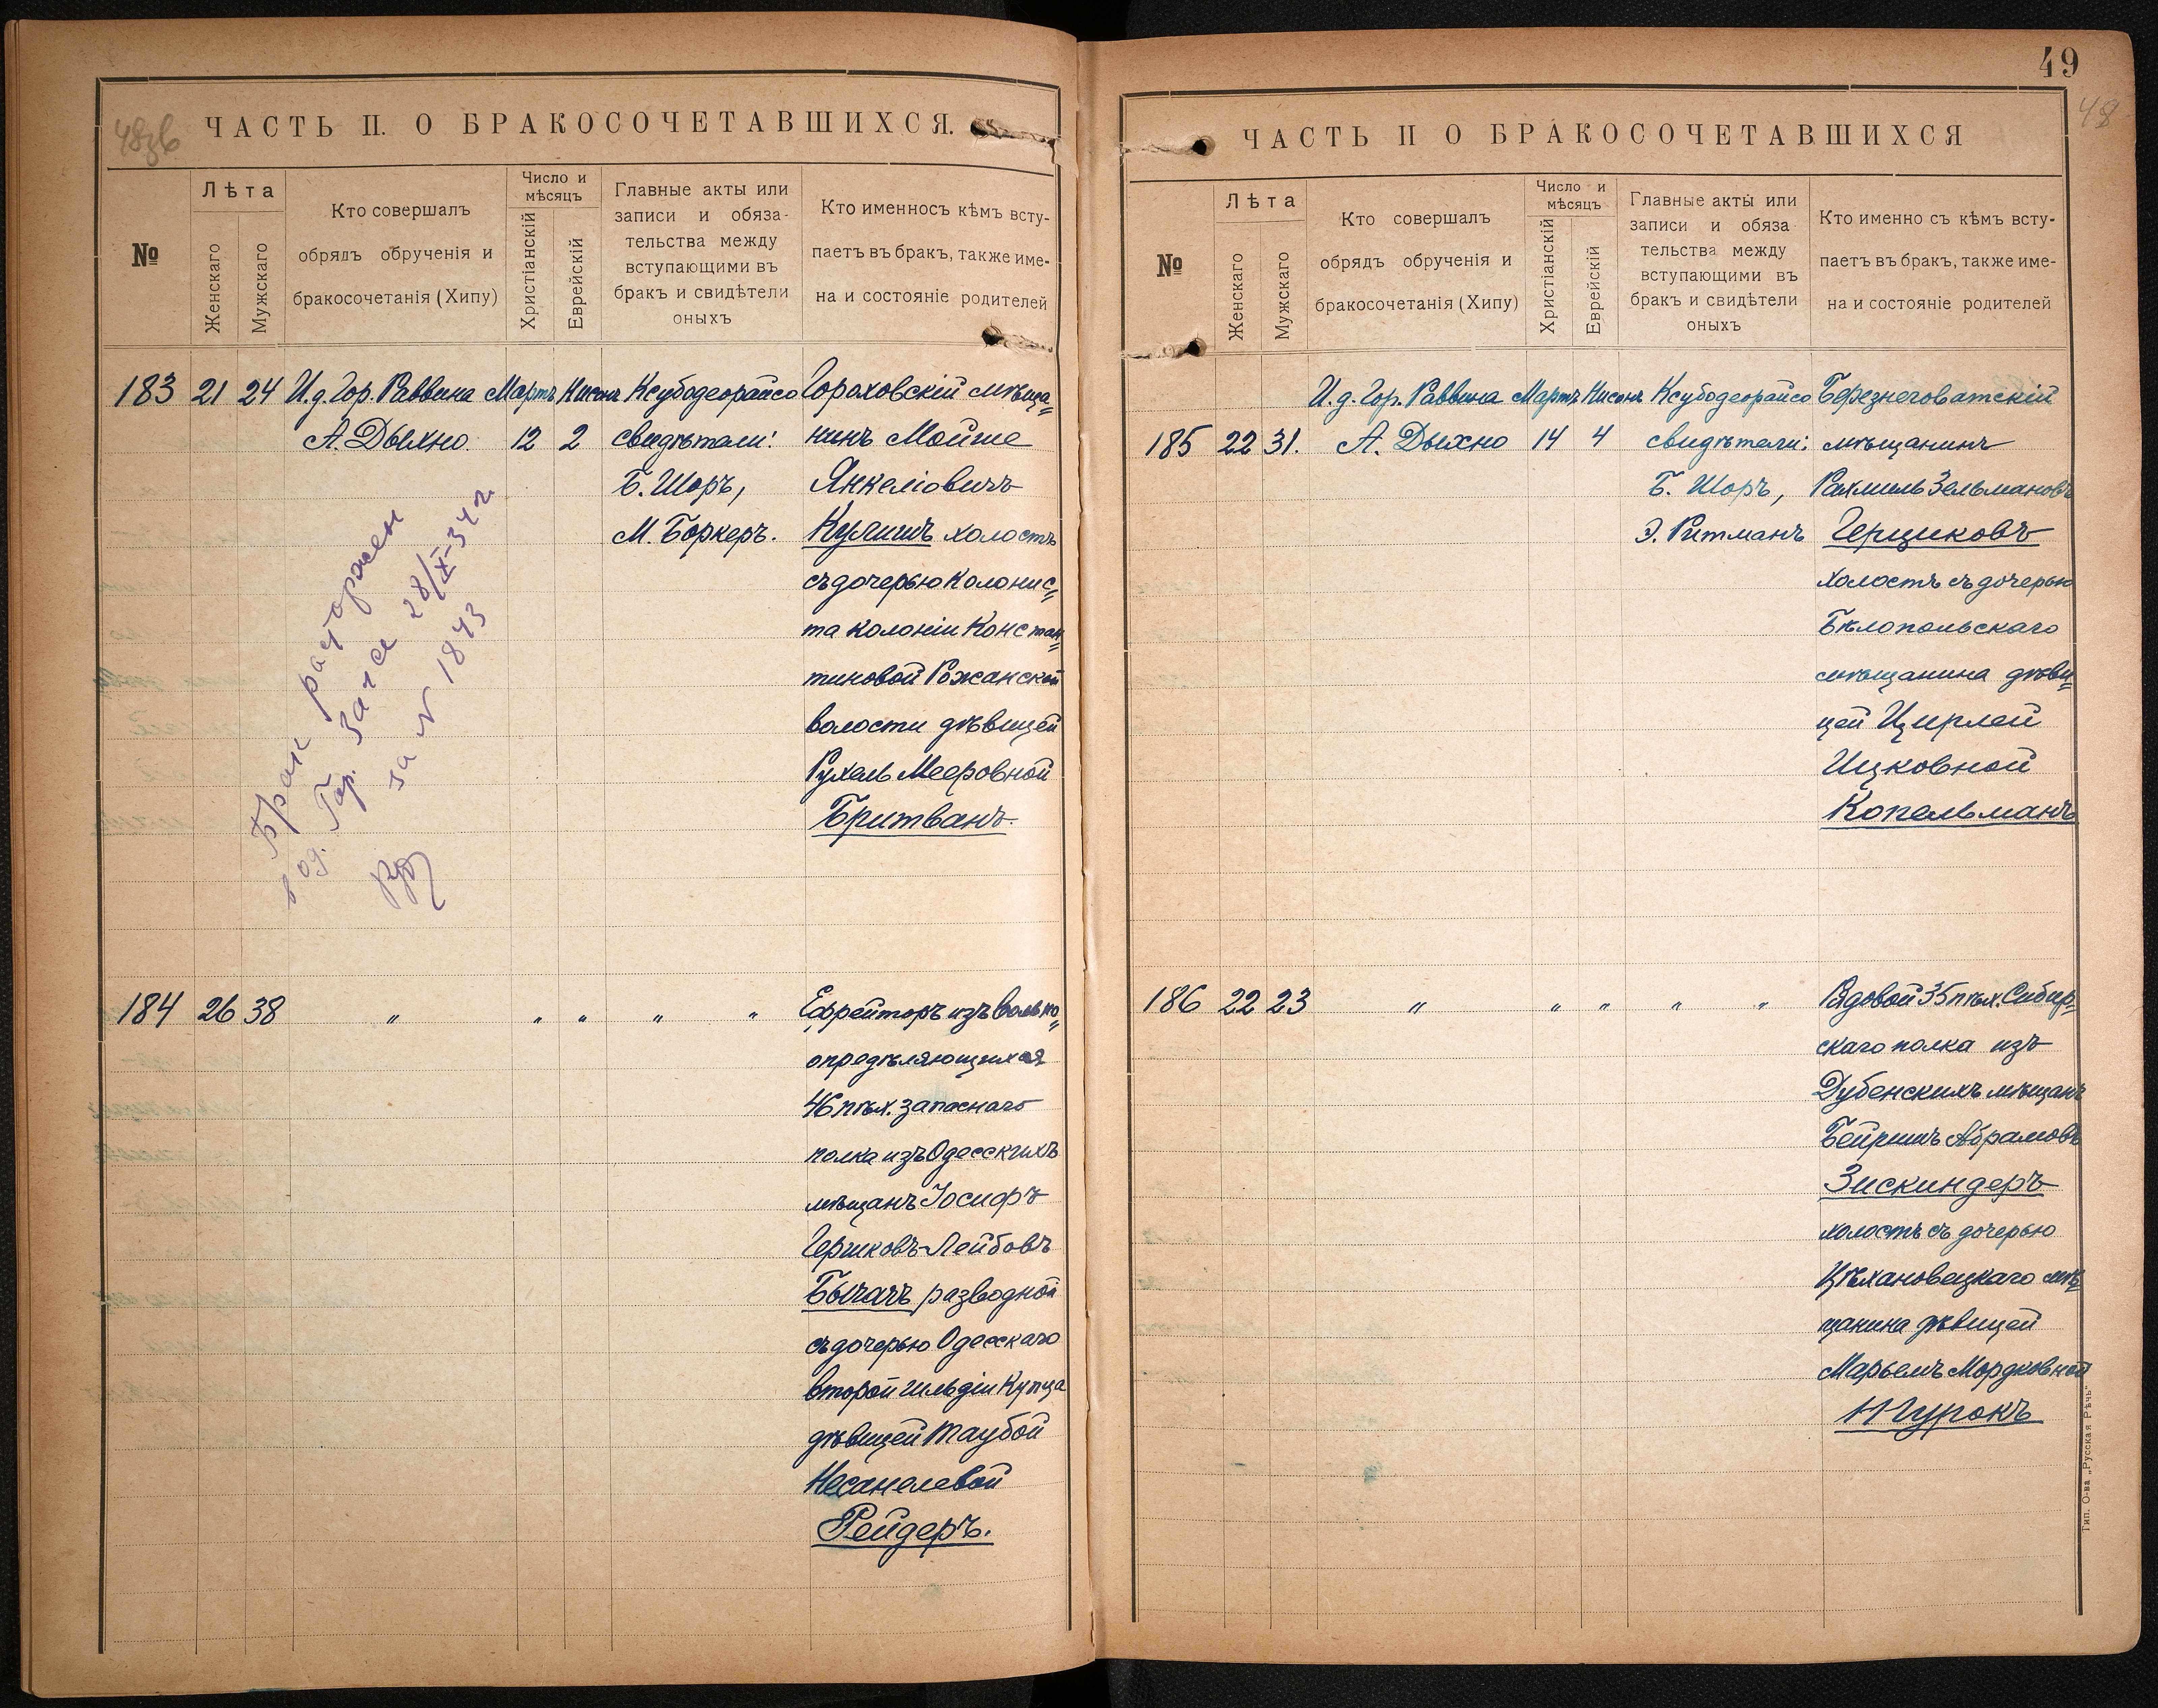 48зв
ЧАСТЬ II. О БРАКОСОЧЕТАВШИХСЯ.
№
Лѣта
Женскаго
Мужскаго
Кто совершалъ
обрядъ обрученія и
бракосочетанія (Хипу)
Число и
мѣсяцъ
Христіанскій
Еврейскій
Главные акты или
записи и обяза-
тельства между
вступающими въ
бракъ и свидѣтели
оныхъ
Кто именносъ кѣмъ всту-
паетъ въ бракъ, также име-
на и состояніе родителей
183 21 24 И.д. Гор. Раввина Мартъ Нисонъ Ксубодеорайсо Гороховскій мѣща=
А. Дыхно. 12 2 свидѣтели: нинъ Мойше
Б. Шоръ, Янкеліовичъ
М. Боркеръ. Кулишъ холостъ
съ дочерью колонис=
та колоніи Констан=
тиновой Рожанской
волости дѣвицей
Рухель Мееровной
Бритванъ.
Брак расторжен
в Од. Гор. Загсе 28/X-34 г.
за № 1843
184 26 38 " " " " " Ефрейторъ изъ вольно=
опредѣляющихся
46 пѣх. запаснаго
полка изъ Одесскихъ
мѣщанъ Іосифъ
Гершковъ-Лейбовъ
Бычачъ разводной
съ дочерью Одесскаго
второй гильдіи Купца
дѣвицей Таубой
Несанелевой
Рейдеръ.
49
48
ЧАСТЬ II О БРАКОСОЧЕТАВШИХСЯ
№
Лѣта
Женскаго
Мужскаго
Кто совершалъ
обрядъ обрученія и
бракосочетанія (Хипу)
Число и
мѣсяцъ
Христіанскій
Еврейскій
Главные акты или
записи и обяза
тельства между
вступающими въ
бракъ и свидѣтели
оныхъ
Кто именно съ кѣмъ всту-
паетъ въ бракъ, также име-
на и состояніе родителей
И.д. Гор. Раввина Мартъ Нисонъ Ксубодеорайсо Березнеговатскій
185 22 31. А. Дыхно 14 4 свидѣтели: мѣщанинъ
Б. Шоръ, Рахмиль Зельмановъ
Э. Ритманъ Герциковъ
холостъ съ дочерью
Бѣлопольскаго
мѣщанина дѣви=
цей Цирлей
Ицковной
Копельманъ
186 22 23 " " " " " Рядовой 35 пѣх. Сибир=
скаго полка изъ
Дубенскихъ мѣщанъ
Бейришъ Абрамовъ
Зискиндеръ
холостъ съ дочерью
Цѣхановецкаго мѣ=
щанина дѣвицей
Марьемъ Мордковной
Нгурокъ
Тип. О-ва „Русская Рѣчь".